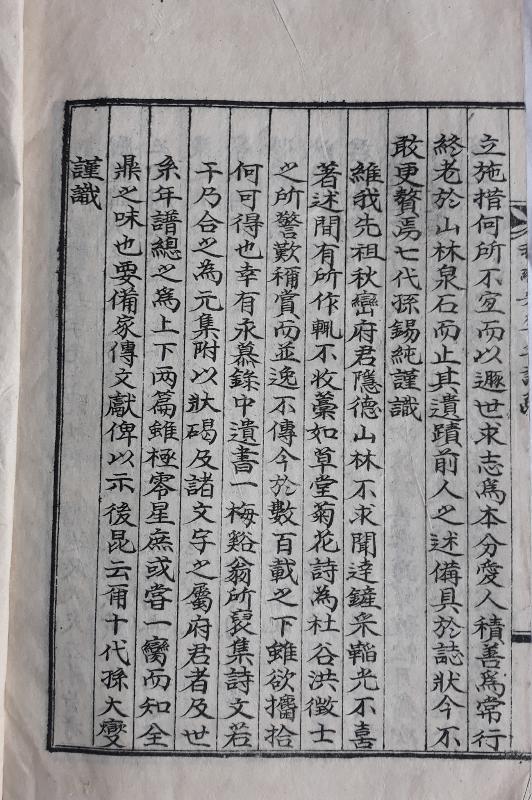 立施措何所不宜而以遯世求志爲本分愛人積善爲常行
終老於山林泉石而止其遺蹟前人之述備具於誌狀今不
敢更贅焉七代孫錫純謹識
維我先祖秋巒府君隱德山林不求聞達鏟采韜光不喜
著述間有所作輒不收藁如草堂菊花詩為杜谷洪徵士
之所警歎稱賞而並逸不傳今於數百載之下雖欲攟拾
何可得也幸有永慕錄中遺書一梅谿翁所裒集詩文若
干乃合之為元集附以狀碣及諸文字之屬府君者及世
系年譜總之爲上下两篇雖極零星庶或甞一臠而知全
鼎之味也要備家傳文獻俾以示後昆云甭十代孫大燮
謹識